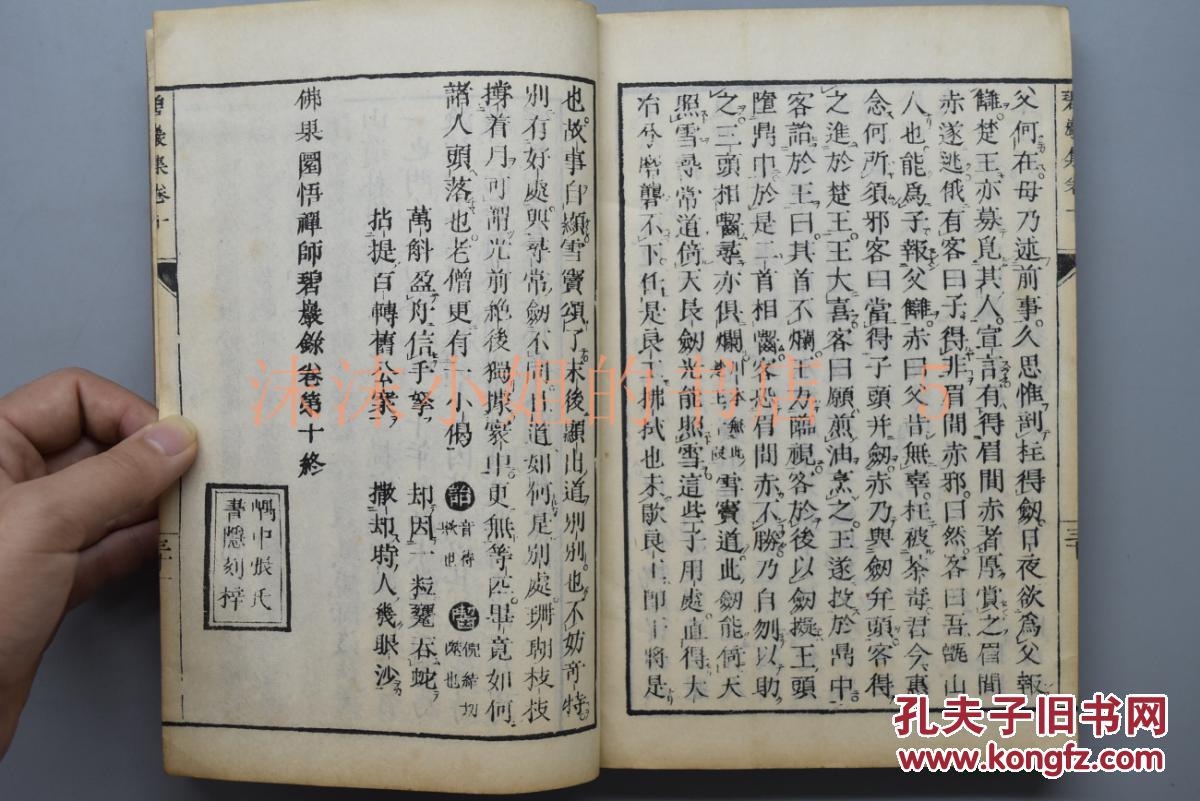 父何在母乃述前事久思惟剖柱得劒日夜欲爲父報
讎楚王亦募覓其人宣言有得眉間赤者厚賞之眉間
赤遂逃俄有客曰子得非眉間赤邪曰然客曰吾甑山
人也能爲子報父讎赤曰父昔無辜枉被荼毒君今惠
念何所須邪客曰當得子頭并劒赤乃與劒幷頭客得
之進於楚王王大喜客曰願煎油烹之王遂投於鼎中
客詒於王曰其首不爛王方臨視客於後以劒擬王頭
墮鼎中於是二首相齧客恐眉間赤不勝乃自刎以助
之三頭相齧尋亦俱爛雪竇道此劒能倚天
照雪尋常道倚天長劒光能照雪這些子用處直得大
冶兮磨礱不下任是良工拂拭也未歇良工即干將是
也故事自顯雪竇頌了末後顯出道別別也不妨奇特
別有好處與尋常劒不同且道如何是別處珊瑚枝枝
撐着月可謂光前絶後獨據寰中更無等匹畢竟如何
諸人頭落也老僧更有一小偈
詒 音待 欺也
齧 倪結切 噬也
萬斛盈舟信手拏 却因一粒甕吞蛇
拈提百轉舊公案 撒却時人幾眼沙
佛果圜悟禪師碧巖錄卷第十終
嵎中張氏
書隱刻梓
碧巖集卷十
沫沫小姐的书店 5
孔夫子旧书网
www.kongfz.com